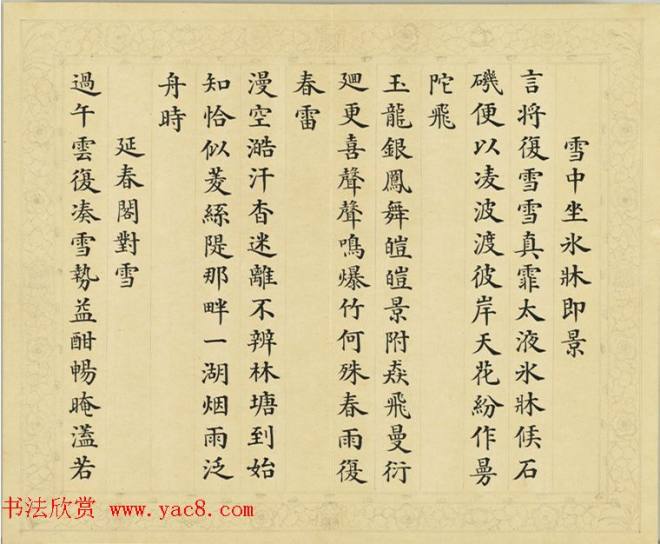 雪中坐氷牀即景
言将復雪雪真霏太液氷牀倐石
磯便以凌波渡彼岸天花紛作曼
陀飛
玉龍銀鳳舞皚皚景附猋飛曼衍
廻更喜聲聲鳴爆竹何殊春雨復
春雷
漫空澔汗杳迷離不辨林塘到始
知恰似菱絲隄那畔一湖烟雨泛
舟時
延春閣對雪
過午雲復凑雪勢益酣暢晻濭若
书法欣赏 www.yac8.com